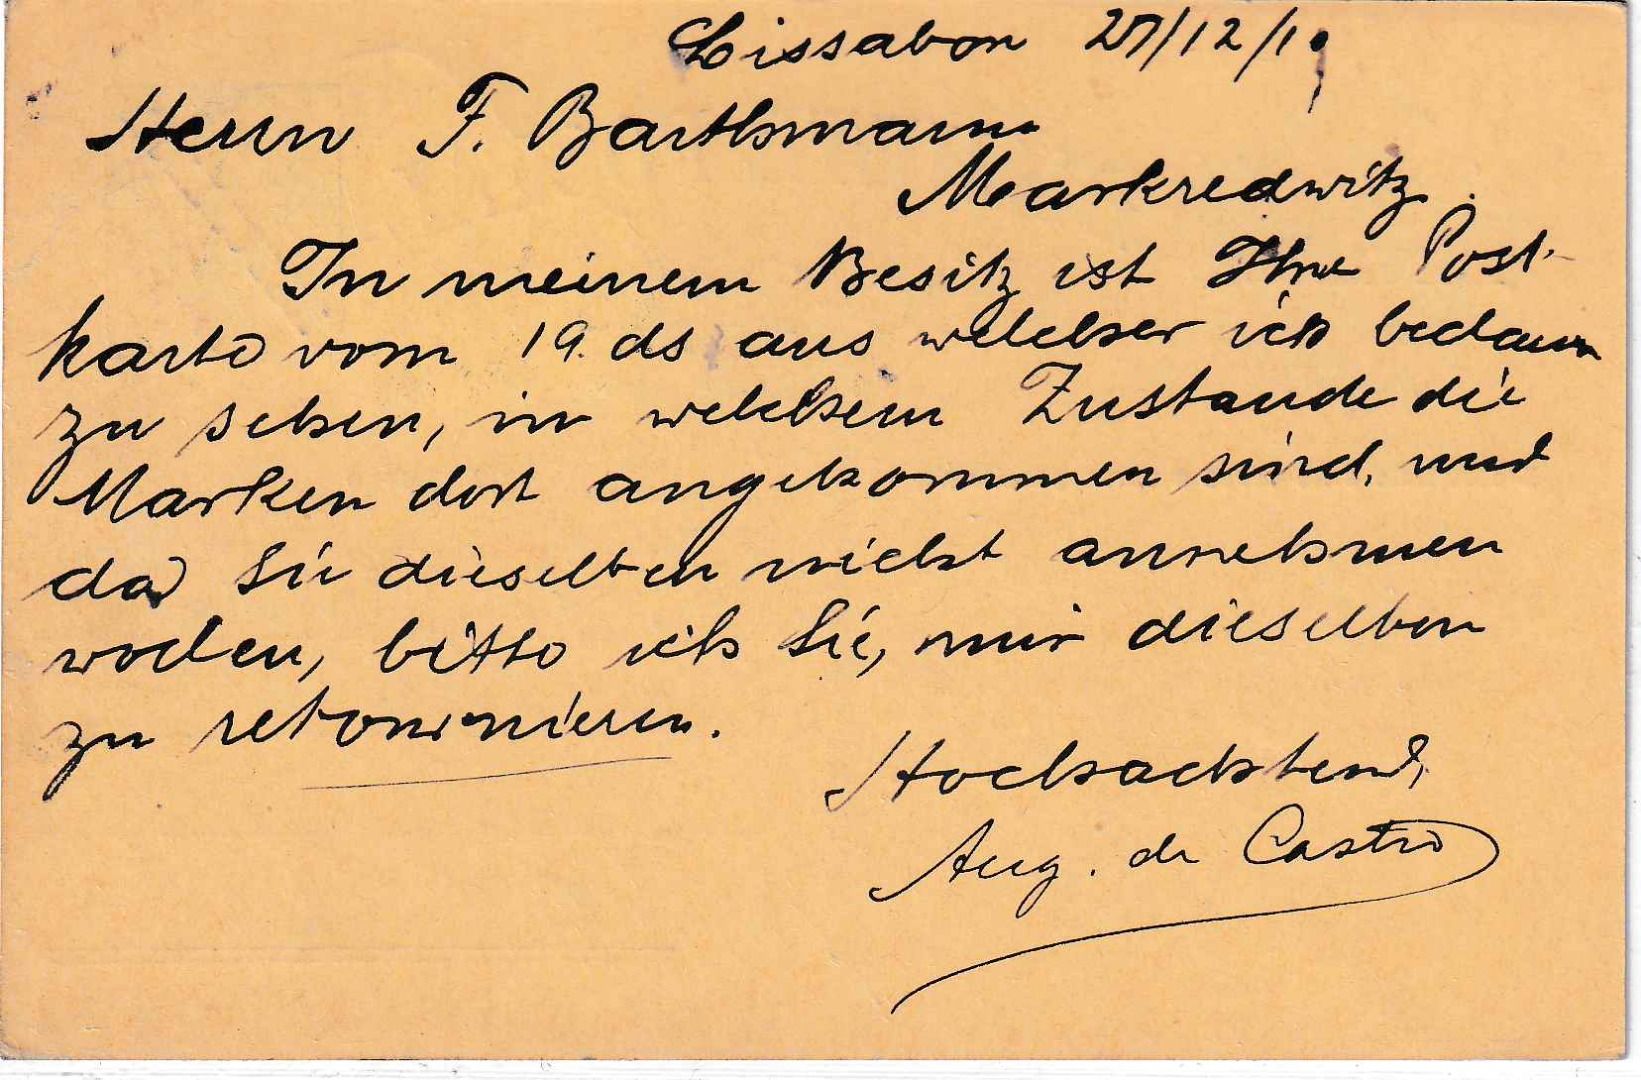 Lissabon 27/12/10
Herrn F. Barthmann
Markredwitz.
In meinem Besitz ist Ihre Post-
karte vom 19. ds aus welcher ich bedaure
zu sehen, in welchem Zustande die
Marken dort angekommen sind, und
da Sie dieselben nicht annehmen
wollen, bitte ich Sie, mir dieselben
zu retournieren.
Hochachtend,
Aug. de Castro